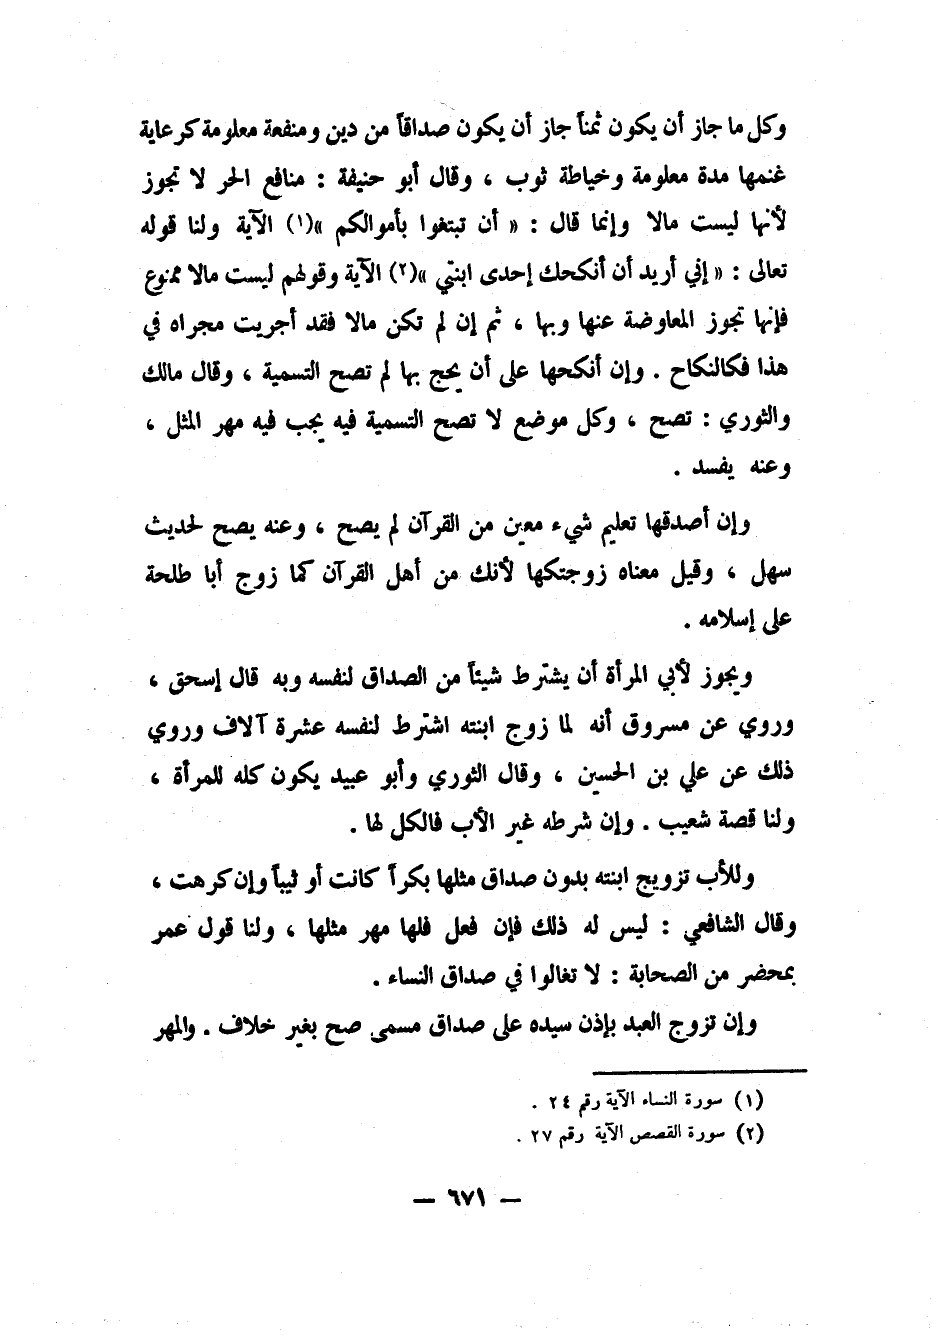 وكل ما جاز أن يكون ثمناً جاز أن يكون صداقاً من دين ومنفعة معلومة كرعاية
غنمها مدة معلومة وخياطة ثوب ، وقال أبو حنيفة : منافع الحر لا تجوز
لأنها ليست مالا وإنما قال : « أن تبتغوا بأموالكم »(١) الآية ولنا قوله
تعالى : « إني أريد أن أنكحك إحدى ابنتي »(٢) الآية وقولهم ليست مالا ممنوع
فإنها تجوز المعاوضة عنها وبها ، ثم إن لم تكن مالا فقد أجريت مجراه في
هذا فكالنكاح . وإن أنكحها على أن يحج بها لم تصح التسمية ، وقال مالك
والثوري : تصح ، وكل موضع لا تصح التسمية فيه يجب فيه مهر المثل ،
وعنه يفسد .
وإن أصدقها تعليم شيء معين من القرآن لم يصح ، وعنه يصح لحديث
سهل ، وقيل معناه زوجتكها لأنك من أهل القرآن كما زوج أبا طلحة
على إسلامه .
ويجوز لأبي المرأة أن يشترط شيئاً من الصداق لنفسه وبه قال إسحق ،
وروي عن مسروق أنه لما زوج ابنته اشترط لنفسه عشرة آلاف وروي
ذلك عن علي بن الحسين ، وقال الثوري وأبو عبيد يكون كله للمرأة ،
ولنا قصة شعيب . وإن شرطه غير الأب فالكل لها .
وللأب تزويج ابنته بدون صداق مثلها بكراً كانت أو ثيباً وإن كرهت ،
وقال الشافعي : ليس له ذلك فإن فعل فلها مهر مثلها ، ولنا قول عمر
بمحضر من الصحابة : لا تغالوا في صداق النساء .
وإن تزوج العبد بإذن سيده على صداق مسمى صح بغير خلاف . والمهر
(١) سورة النساء الآية رقم ٢٤ .
(٢) سورة القصص الآية رقم ٢٧ .
— ٦٧١ —